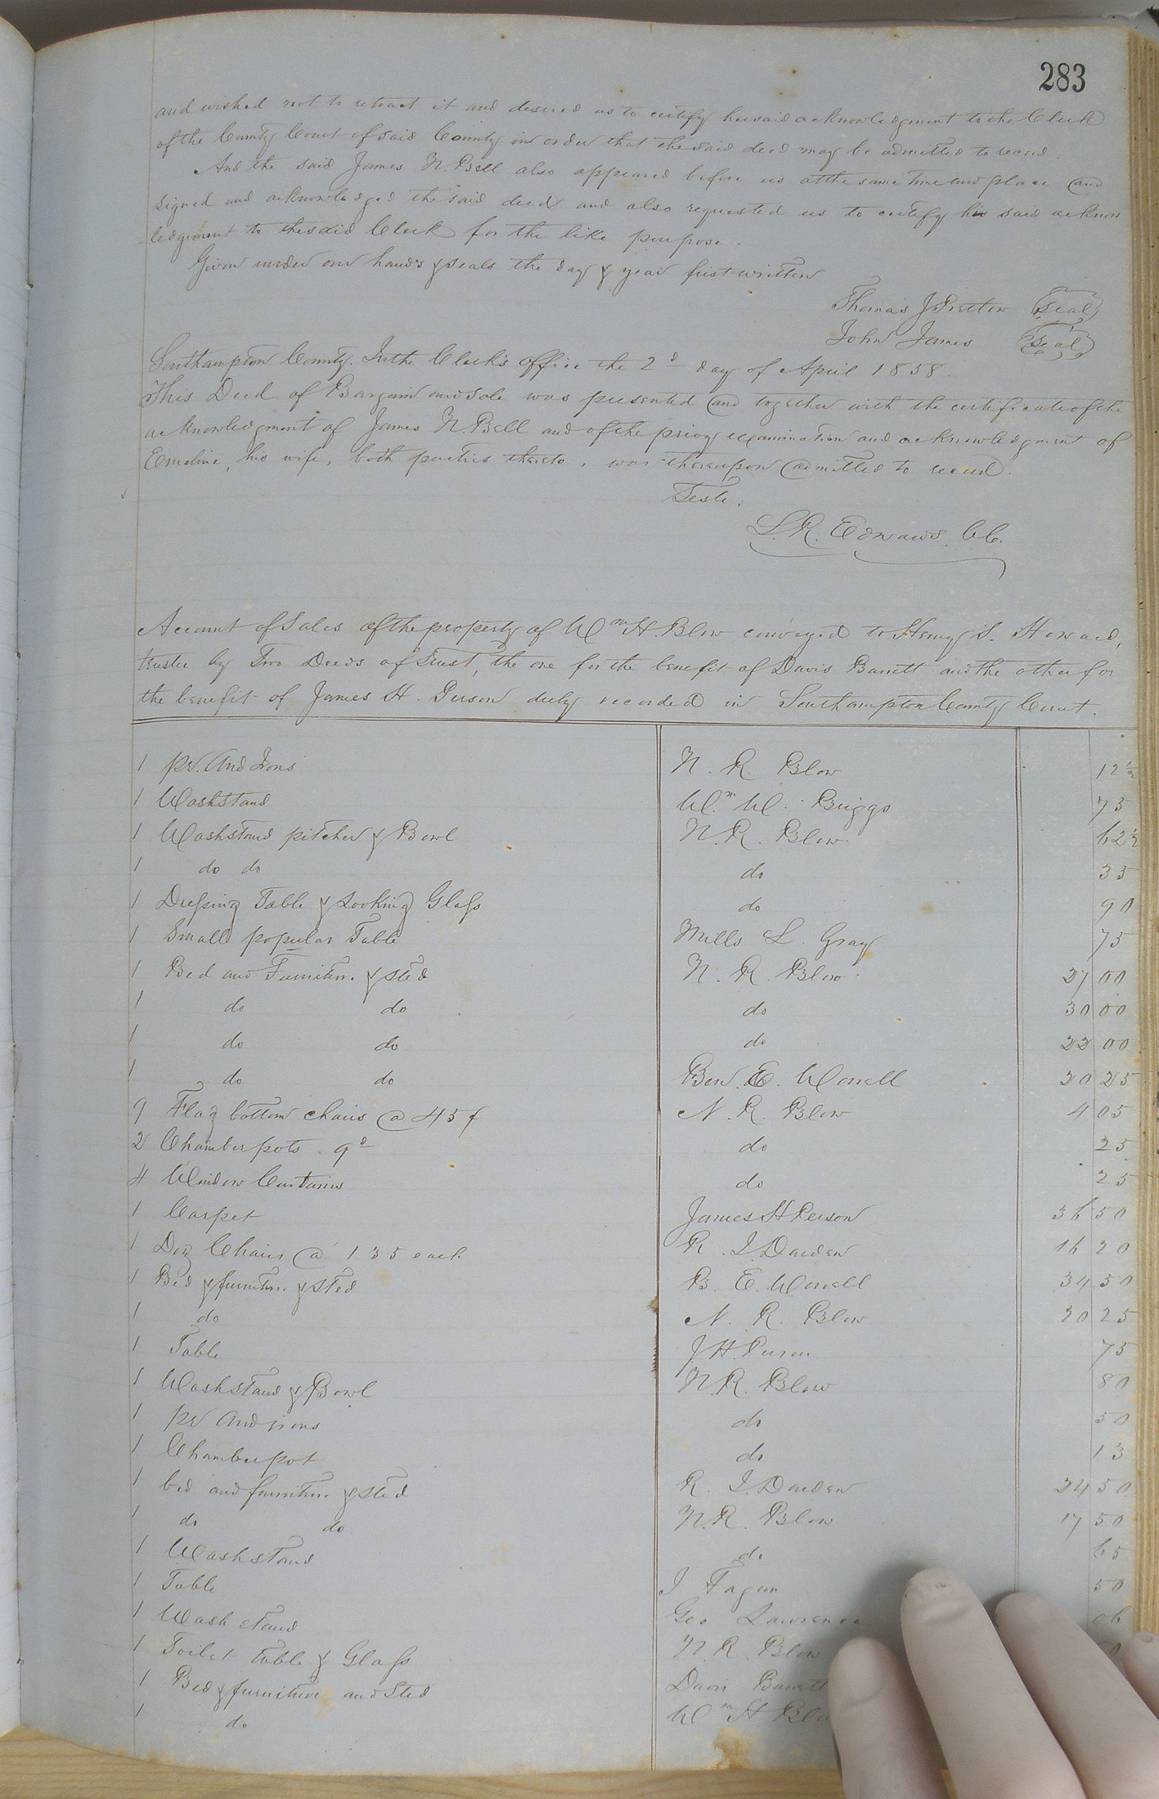 283
and wished not to retract it and desired us to certify her said acknowledgment to the Clerk
of the County Court of said County in order that the said deed may be admitted to record.
And the said James N. Bell also appeared before us at the same time and place and
signed and acknowledged the said deed and also requested us to certify his said acknow
ledgment to the said Clerk for the like purpose.
Given under our hands & seals the day & year first written
Thomas J Pretlow Seal
John James Seal
Southampton County. In the Clerk's office the 2d day of April 1858.
This Deed of Bargain and sale was presented and together with the certificate of the
acknowledgment of James N Bell and of the privy examination and acknowledgment of
Emeline, his wife, both parties thereto, was thereupon admitted to record.
Teste.
L. R. Edwards. C.C.
Account of Sales of the property of Wm H. Blow conveyed to Henry S. Howard,
trustee by Two Deeds of Trust, the one for the benefit of Davis Barrett and the other for
the benefit of James H. Person duly recorded in Southampton County Court.
1 pr. And Irons N. R Blow 12½
1 Washstand Wm W. Briggs 75
1 Washstand pitcher & Bowl N. R. Blow 62½
1 do do do 35
1 Dressing Table & Looking Glass do 90
1 Small popular Table Mills L. Gray 75
1 Bed and Furniture & sted N. R. Blow 27 00
1 do do do 30 00
1 do do do 22 00
1 do do Ben. E. Worrell 20 25
9 Flag bottom chairs @ 45 ¢ N. R. Blow 4 05
2 Chamber pots 9d do 25
4 Window Curtains do 25
1 Carpet James H Person 36 50
1 Doz Chairs @ 1 35 each R. I. Darden 16 20
1 Bed & furniture & sted B. E. Worrell 34 50
1 do N. R. Blow 20 25
1 Table J H. Person 75
1 Washstand & Bowl N R. Blow 80
1 pr And irons do 50
1 Chamber pot do 13
1 bed and furniture & sted R. I. Darden 24 50
1 do do N. R. Blow 17 50
1 Washstand do 65
1 Table I Fagan 50
1 Wash stand Geo Lawrence 06
1 Toilet table & Glass N. R. Blow
1 Bed & furniture and Sted Davis Barrett
1 do Wm H Blow